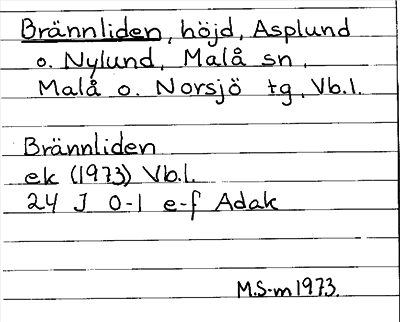 Brännliden, höjd, Asplund
o. Nylund, Malå sn,
Malå o. Norsjö tg, Vb.l.
Brännliden
ek (1973) Vb.l.
24 J 0-1 e-f Adak
M.S-m 1973.